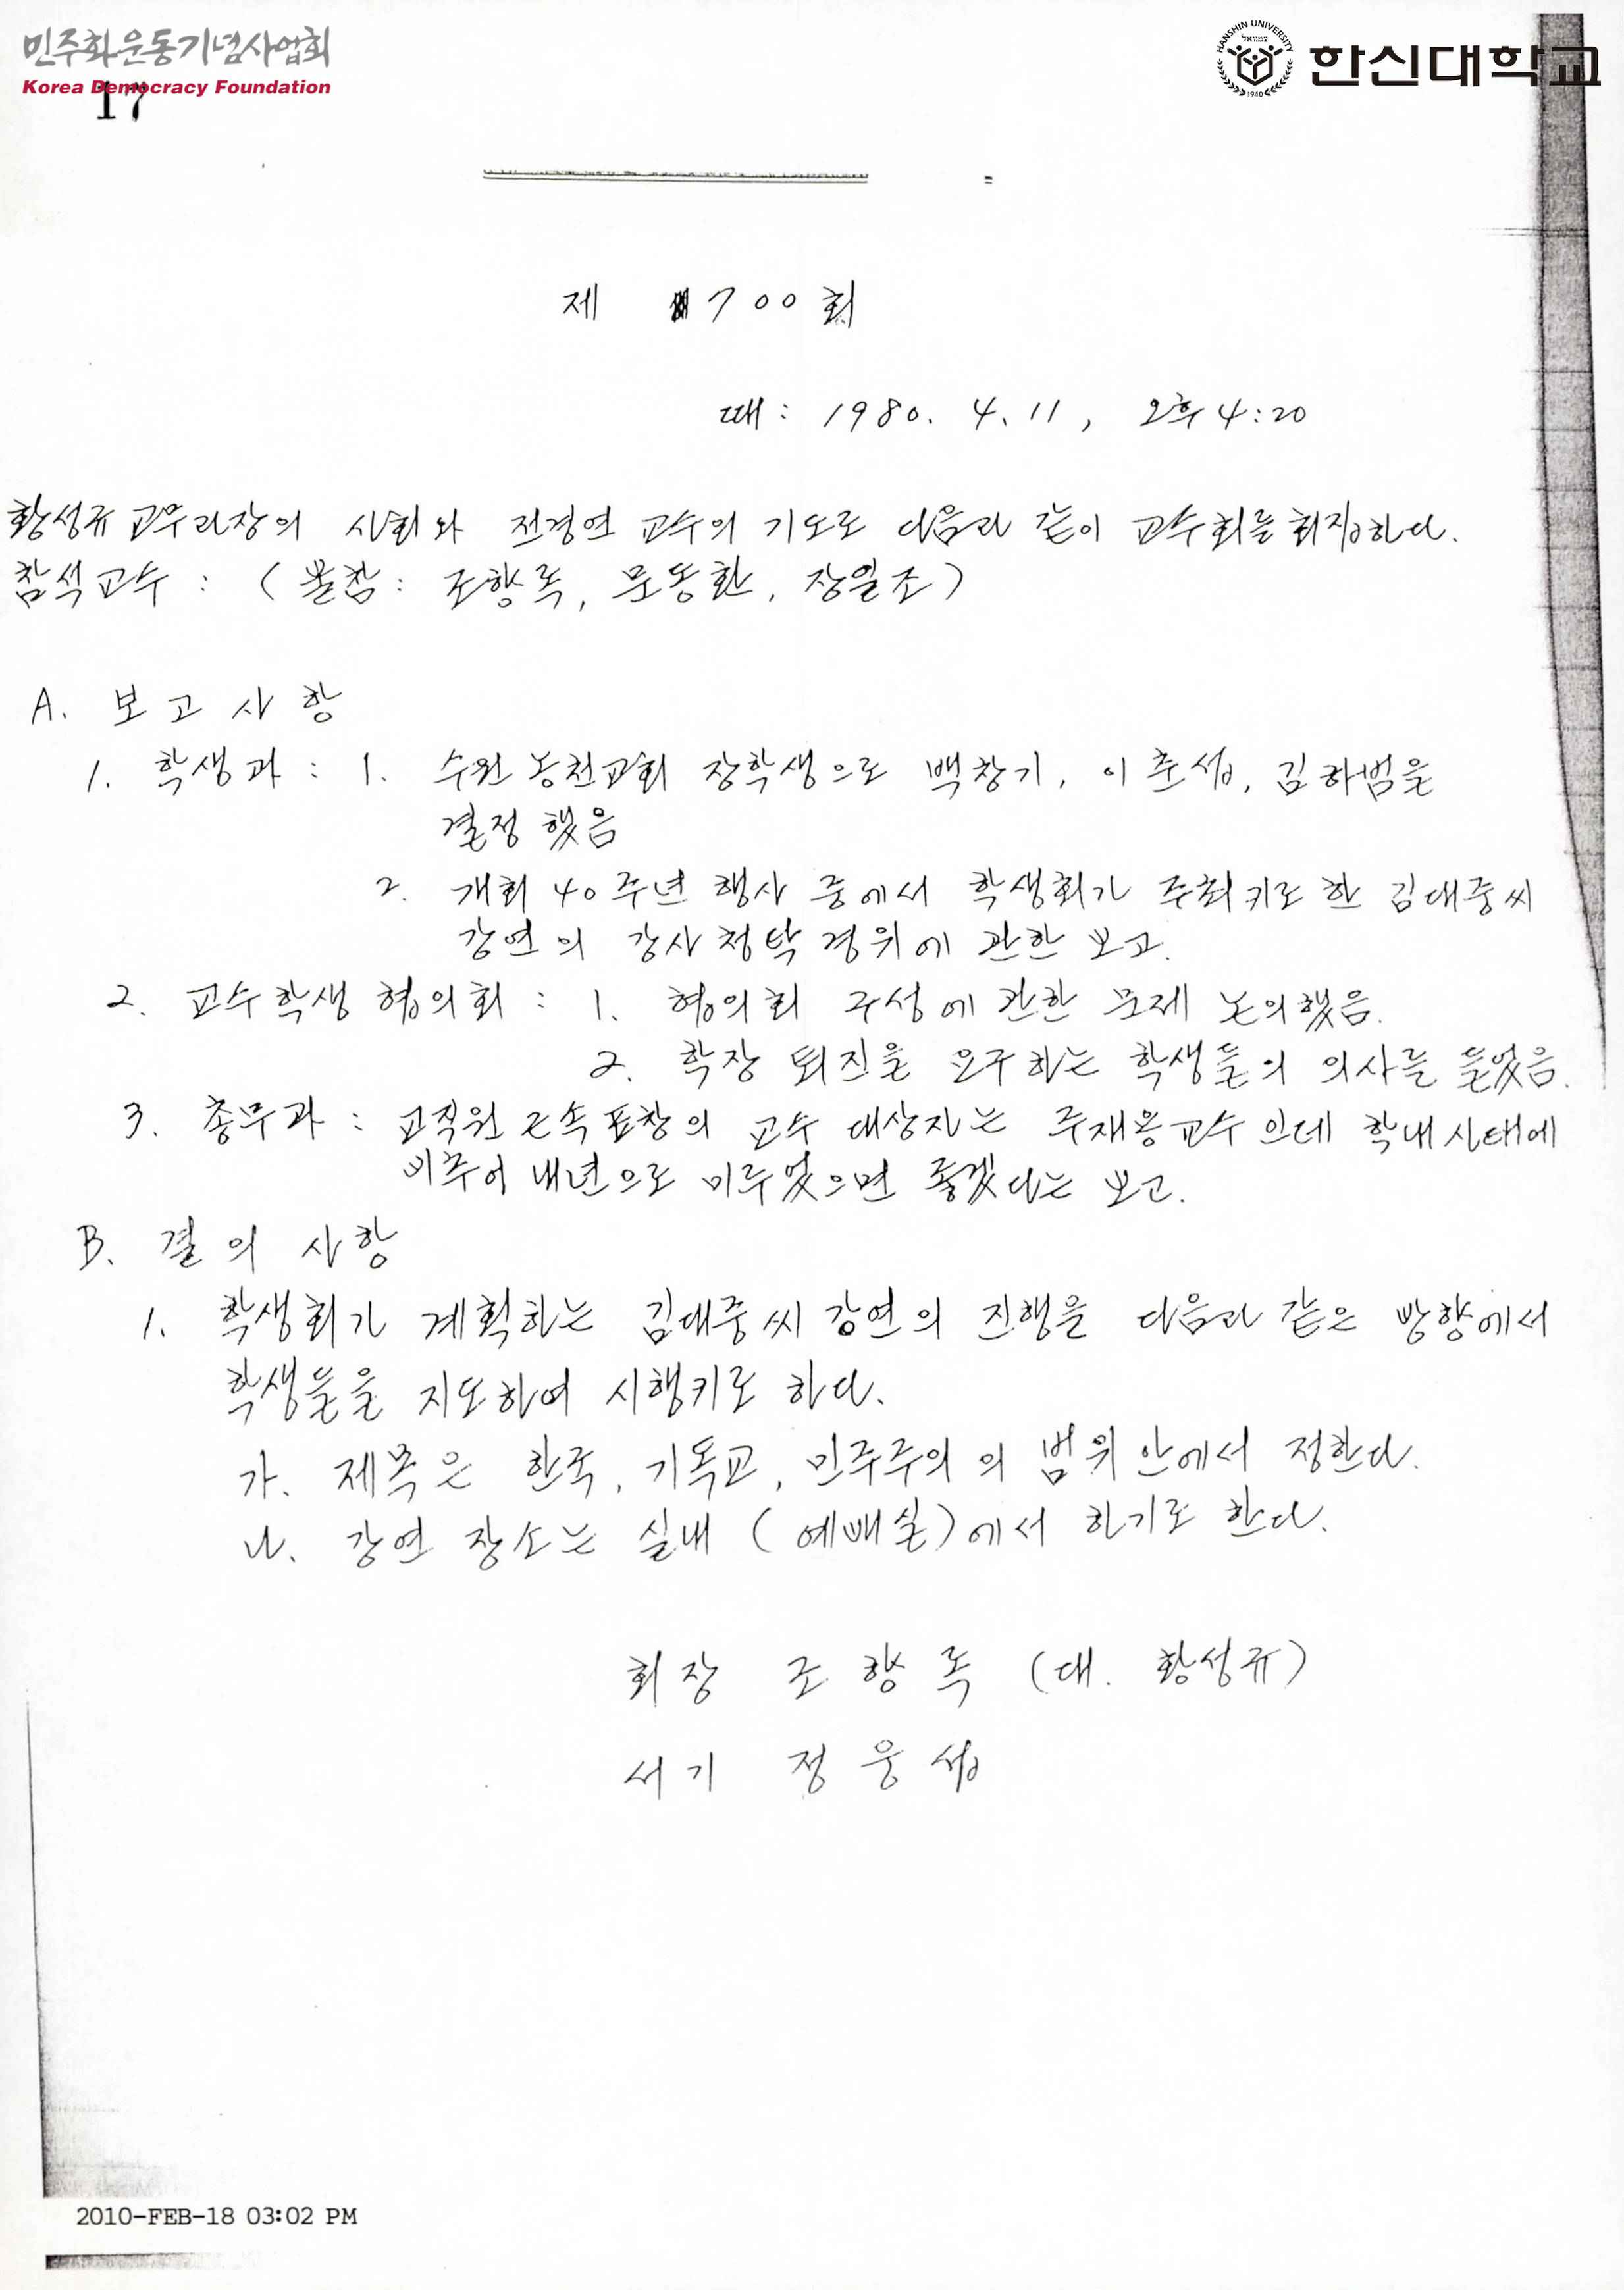 민주화운동기념사업회
Korea Democracy Foundation
HANSHIN UNIVERSITY
1940
한신대학교
17
제 700회
때 : 1980. 4. 11, 오후 4:20
황성규 교무과장의 사회와 전경연 교수의 기도로 다음과 같이 교수회를 회집하다.
참석교수 : ( 불참 : 조향록, 문동환, 장일조 )
A. 보고사항
1. 학생과 : 1. 수원 농천교회 장학생으로 백창기, 이춘섭, 김하범을
결정했음
2. 개회 40주년 행사 중에서 학생회가 주최키로 한 김대중씨
강연의 강사 청탁 경위에 관한 보고.
2. 교수학생 협의회 : 1. 협의회 구성에 관한 문제 논의했음.
2. 학장 퇴진을 요구하는 학생들의 의사를 들었음.
3. 총무과 : 교직원 근속표창의 교수 대상자는 주재용교수인데 학내사태에
비추어 내년으로 미루었으면 좋겠다는 보고.
B. 결의 사항
1. 학생회가 계획하는 김대중씨 강연의 진행을 다음과 같은 방향에서
학생들을 지도하여 시행키로 하다.
가. 제목은 한국, 기독교, 민주주의의 범위 안에서 정한다.
나. 강연 장소는 실내 ( 예배실)에서 하기로 한다.
회장 조향록 (대. 황성규)
서기 정웅섭
2010-FEB-18 03:02 PM